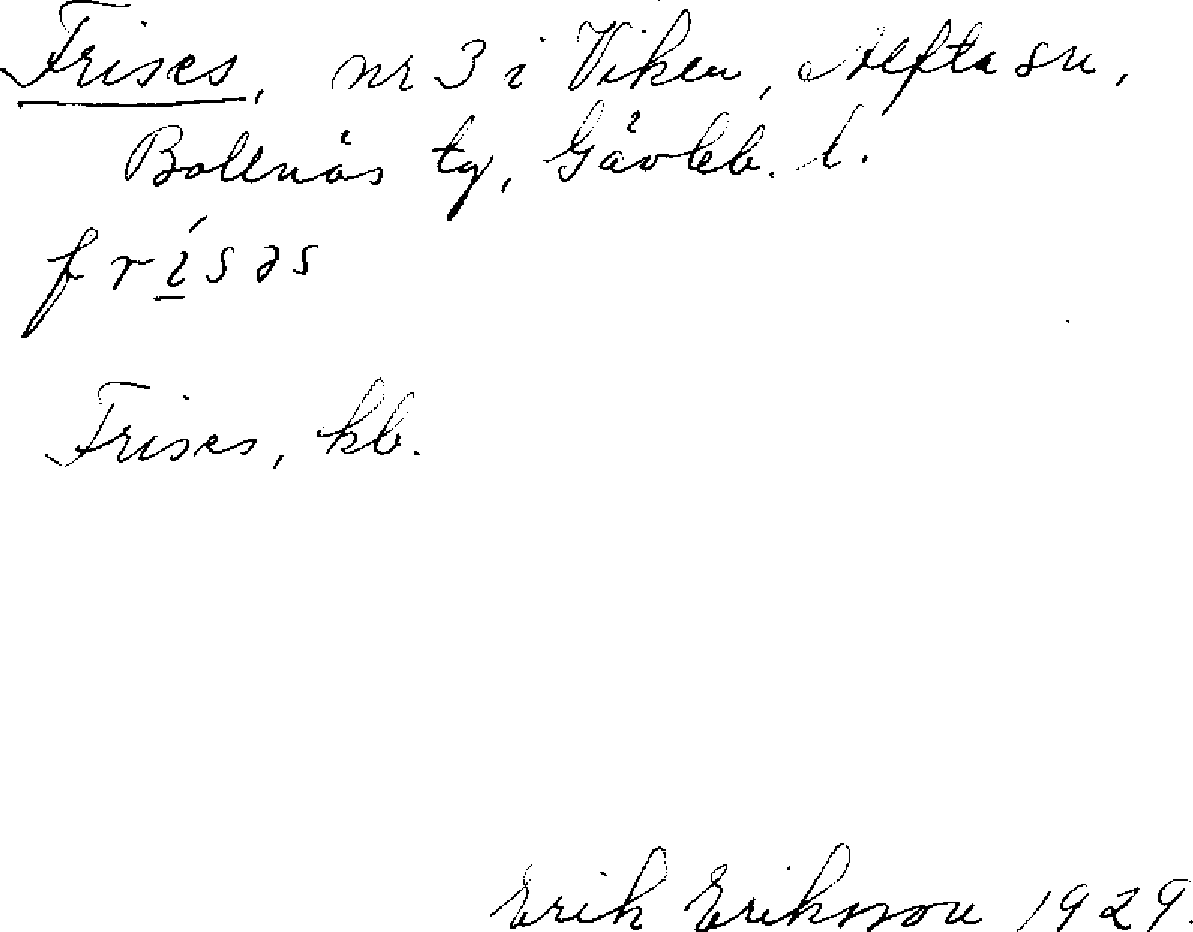 Frises, nr 3 i Viken, Alfta sn,
Bollnäs tg, Gävleb. l.
frísəs
Frises, kb.
Erik Eriksson 1929.